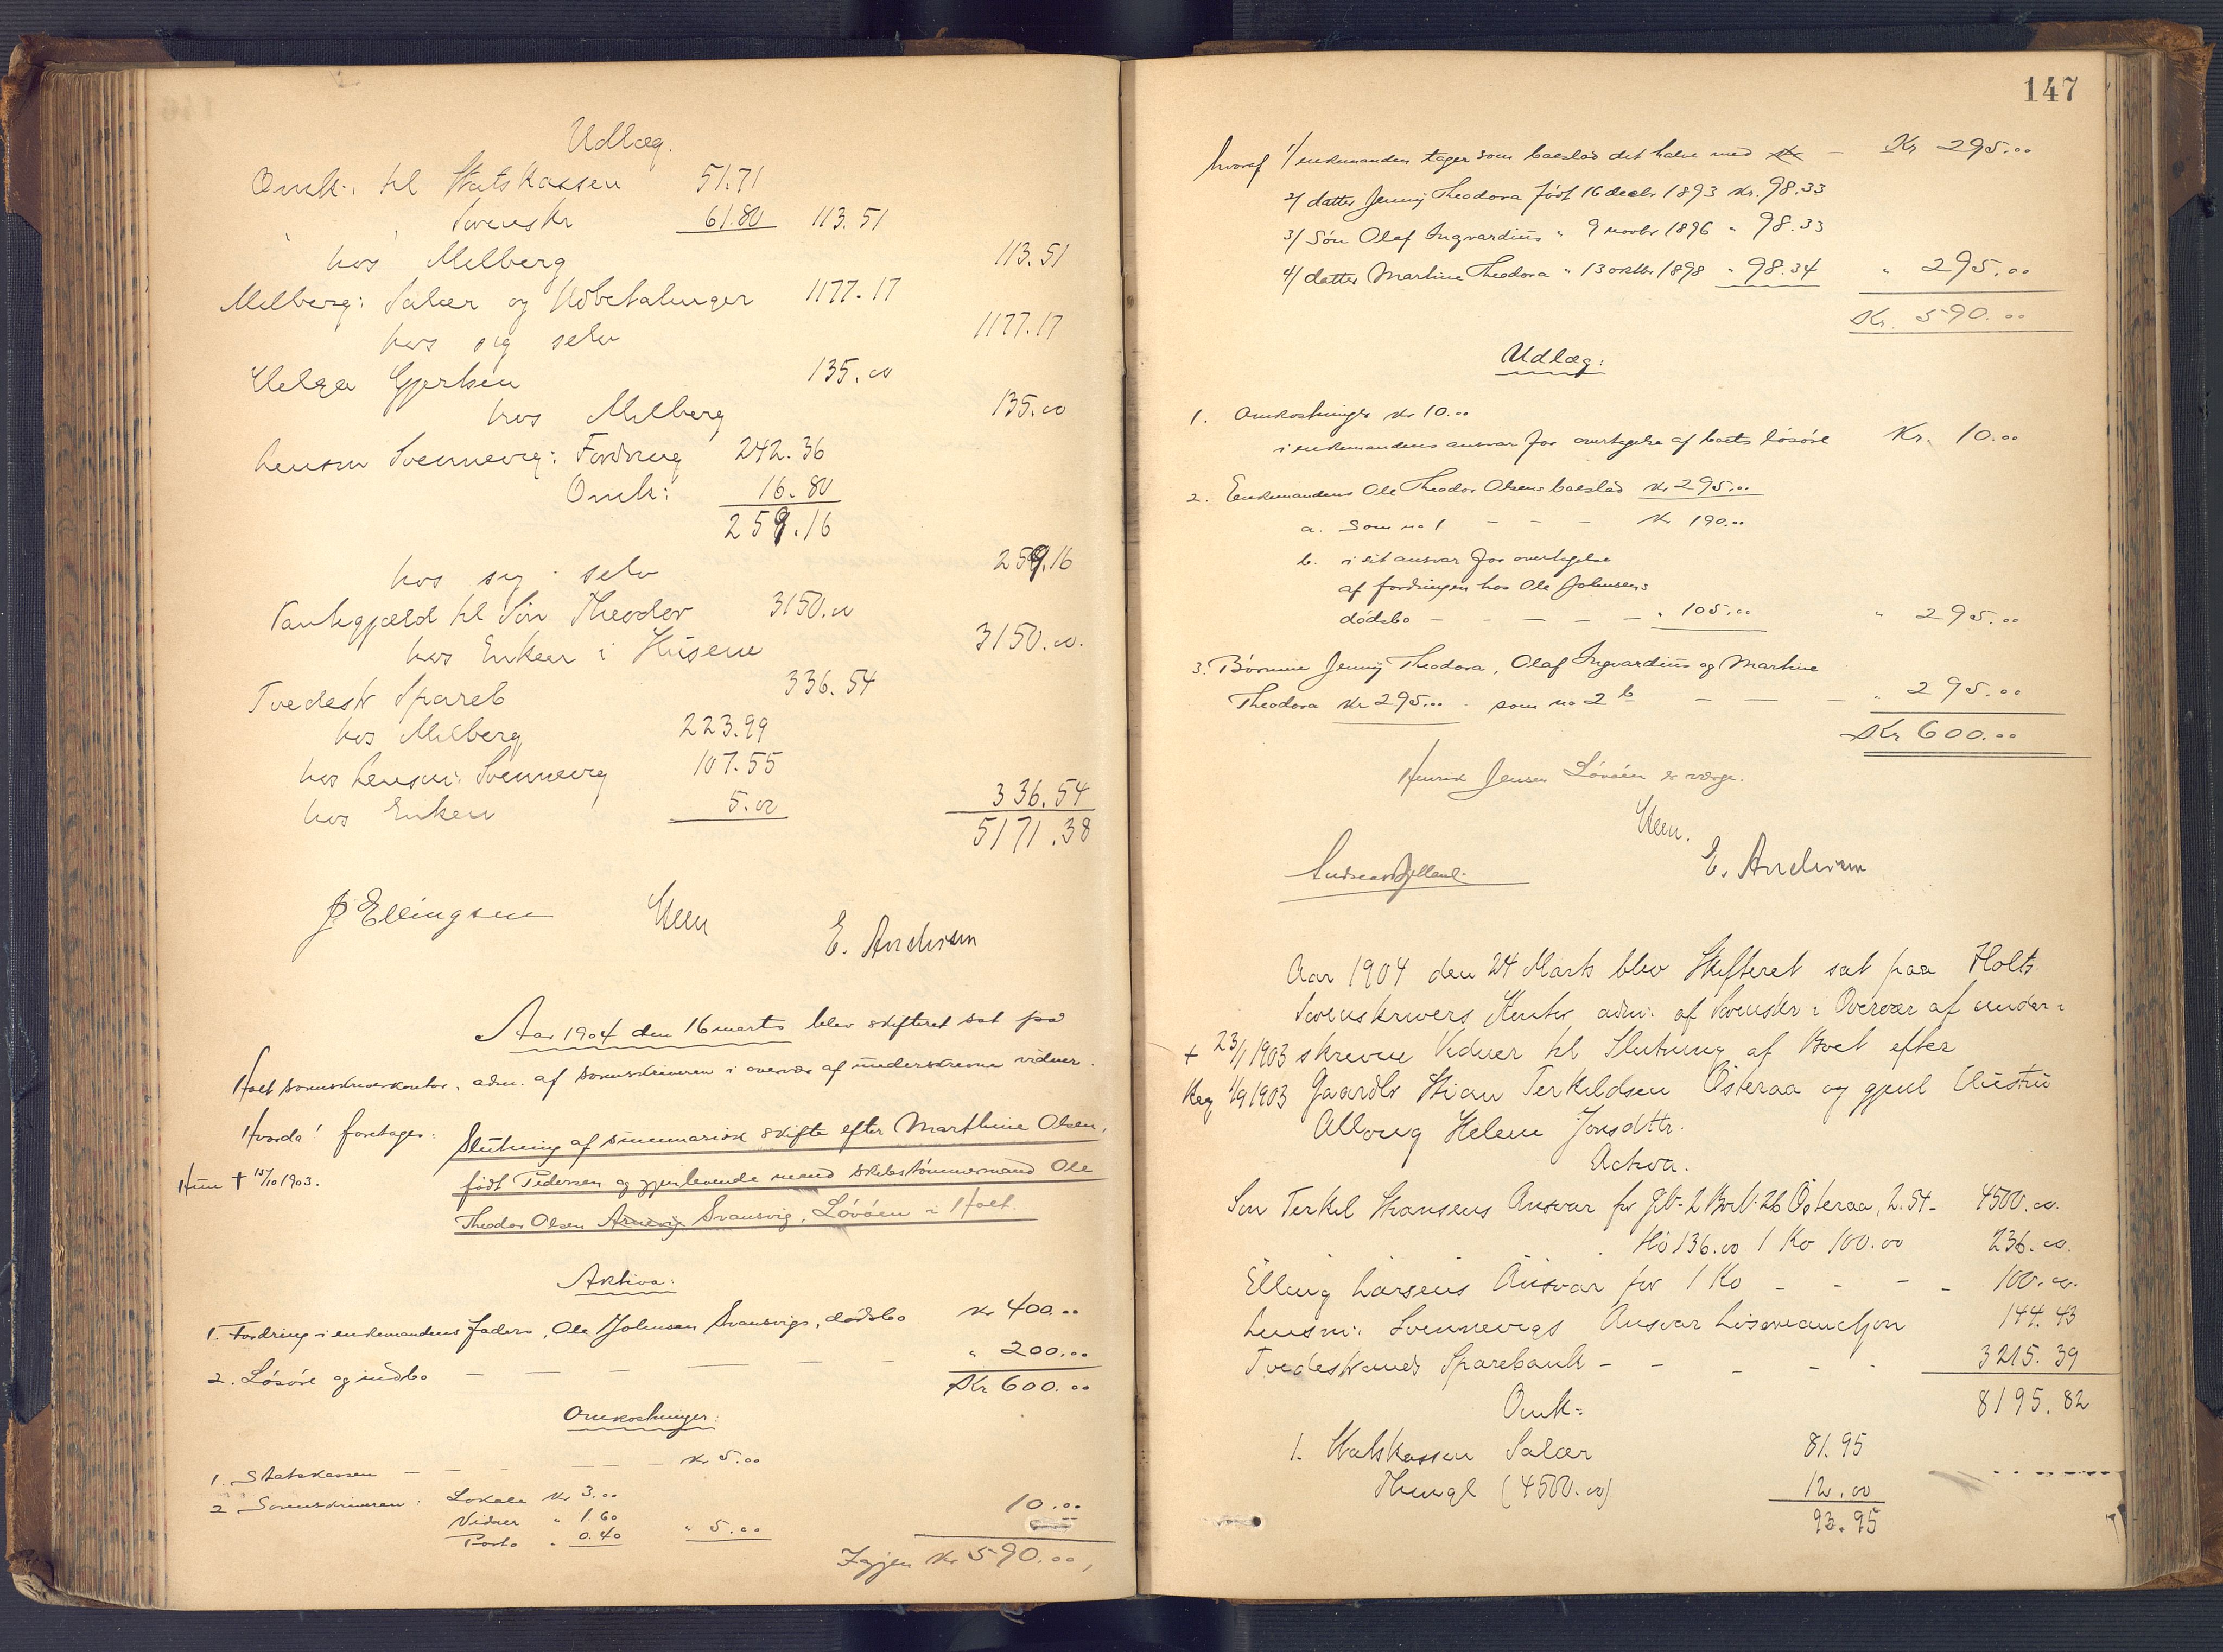 Udlæg.
Omk: til Statskassen 51.71
" " Sorenskr 61.80 113.51
hos Melberg 113.51
Melberg: Salær og Udbetalinger 1177.17
hos sig selv 1177.17
Helga Gjertsen 135.00
hos Melberg 135.00
Lensm Svennevig: Fordring 242.36
Omk: 16.80
259.16
hos sig selv 259.16
Pantegjæld til Søn Theodor 3150.00
hos Enken i Husene 3150.00.
Tvedestr Spareb 336.54
hos Melberg 223.99
hos Lensm: Svennevig 107.55
hos Enken 5.00 336.54
5171.38
Ellingsen Heen E. Andersen
Aar 1904 den 16 marts blev skifteret sat på
Holt sorenskriverkontor, adm. af sorenskriveren i overvær af underskrevne vidner.
Hvorda! foretages: Slutning af summarisk skifte efter Marthine Olsen,
Hun † 15/10 1903.
født Pedersen og gjenlevende mand skibstømmermand Ole
Theodor Olsen Arnevig Svansvig, Løvøen i Holt.
Aktiva:
1. Fordring i enkemandens faders, Ole Johnsen Svansvigs, dødsbo kr 400.00
2. Løsøre og indbo — — — — " 200.00
Kr 600.00
Omkostninger:
1. Statskassen — — — — kr 5.00
2 Sorenskriveren: Lokale kr 3.00
Vidner " 1.60
Porto " 0.40 " 5.00 10.00
Igjen kr 590.00,
147
hvoraf 1/ enkemanden tager som boeslod det halve med kr — Kr 295.00
2/ datter Jenny Theodora født 16 decbr 1893 kr. 98.33
3/ Søn Olaf Ingvardius " 9 novbr 1896 " 98.33
4/ datter Martine Theodora " 13 oktbr 1898 " 98.34 " 295.00
Kr. 590.00
Udlæg:
1. Omkostninger kr 10.00
i enkemandens ansvar for overtagelse af boets løsøre Kr. 10.00
2. Enkemandens Ole Theodor Olsens boeslod kr 295.00
a. Som no 1 — — — kr 190.00
b. i sit ansvar for overtagelse
af fordringen hos Ole Johnsens
dødsbo — — — — — " 105.00 " 295.00
3. Børnene Jenny Theodora, Olaf Ingvardius og Martine
Theodora kr 295.00 som no 2 b — — — " 295.00
Kr 600.00
Henrik Jensen Løvøen er værge.
Heen.
E. Andersen
Aar 1904 den 24 Marts blev Skifteret sat paa Holts
Sorenskrivers Kontor adm: af Sorenskr i Overvær af under-
† 23/1 1903 skrevne Vidner til Slutning af Boet efter
Reg 1/9 1903 Gaardbr Stian Terkildsen Østeraa og gjenl Hustru
Alborg Helene Jonsdttr.
Activa.
Søn Terkel Stiansens Ansvar for Gb- 2 Brb. 26 Østeraa, 2.54- 4500.00.
Hø 136.00 1 Ko 100.00 236.00.
Elling Larsens Ansvar for 1 Ko - - - - 100.00.
Lensm: Svennevigs Ansvar Løsøreauction 144.43
Tvedestrands Sparebank - - - - - 3215.39
Omk: 8195.82
1. Statskassen Salær 81.95
Thingl (4500.00) 12.00
93.95